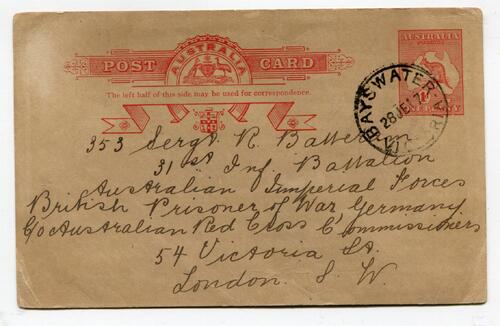 AUSTRALIA
POST CARD
The left half of this side may be used for correspondence.
AUSTRALIA
BAYSWATER
28 JE 17
VICTORIA
353 Sergt R. Batterm
31st Inf Battalion
Australian Imperial Forces
British Prisoner of War Germany
C/o Australian Red Cross Commissioners
54 Victoria St.
London. S. W.